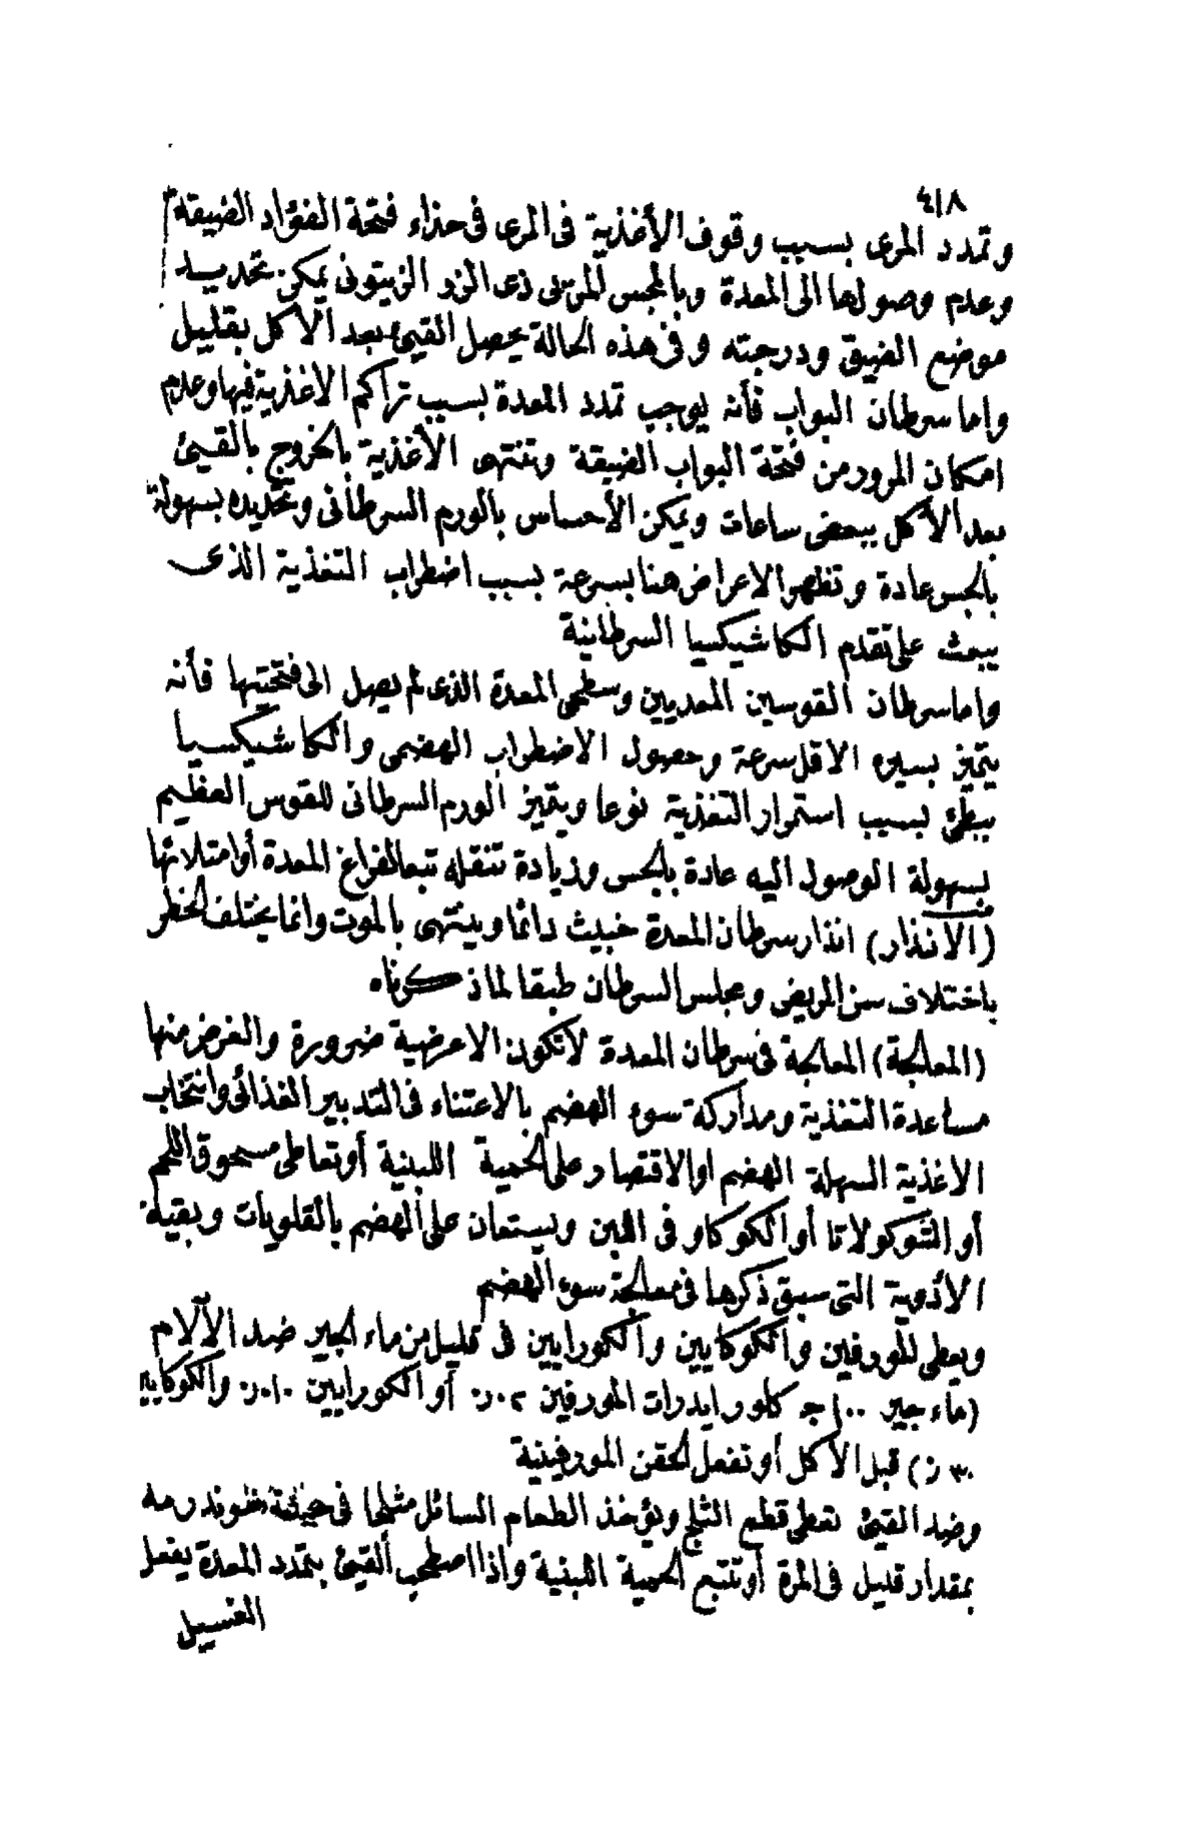 ٤١٨
وتمدد المرى بسبب وقوف الأغذية فى المرى فى حذاء فتحة الفؤاد الضيقة
وعدم وصولها الى المعدة وبالمجس المريئى ذى الزر الزيتونى يمكن تحديد
موضع الضيق ودرجته وفى هذه الحالة يحصل القيئ بعد الأكل بقليل
واما سرطان البواب فأنه يوجب تمدد المعدة بسبب تراكم الاغذية فيها وعدم
امكان المرور من فتحة البواب الضيقة وتنتهى الأغذية بالخروج بالقيئ
بعد الأكل ببعض ساعات ويمكن الأحساس بالورم السرطانى وتحديده بسهولة
بالجس عادة وتظهر الاعراض هنا بسرعة بسبب اضطراب التغذية الذى
يبعث على تقدم الكاشيكسيا السرطانية
واما سرطان القوسين المعديين وسطحى المعدة الذى لم يصل الى فتحتيها فأنه
يتميز بسيره الاقل سرعة وحصول الاضطراب الهضمى والكاشيكسيا
ببطئ بسبب استمرار التغذية نوعا ويتميز الورم السرطانى للقوس العظيم
بسهولة الوصول اليه عادة بالجس وزيادة تنقله تبعا لفراغ المعدة أو امتلائها
(الانذار) انذار سرطان المعدة خبيث دائما وينتهى بالموت وانما يختلف الخطر
باختلاف سن المريض ومجلس السرطان طبقا لما ذكرناه
(المعالجة) المعالجة فى سرطان المعدة لا تكون الا عرضية ضرورة والغرض منها
مساعدة التغذية ومداركة سوء الهضم بالاعتناء فى التدبير الغذائى وانتخاب
الاغذية السهلة الهضم او الاقتصار على الحمية اللبنية أو تعاطى مسحوق اللحم
أو الشوكولاتا أو الكوكاو فى اللبن ويستعان على الهضم بالقلويات وبقية
الأدوية التى سبق ذكرها فى معالجة سوء الهضم
ويعطى المورفين والكوكايين والكورايين فى قليل من ماء الجير ضد الآلام
(ماء جير ١٠٠ جـ كلورايدرات المورفين أو الكورايين والكوكايين
قبل الأكل أو تفعل الحقن المورفينية
وضد القيئ تعطى قطع الثلج ويؤخذ الطعام السائل مثلجا فى
بمقدار قليل فى المرة أو تتبع الحمية اللبنية واذا اصطحب القيئ بتمدد المعدة يفعل
الغسيل